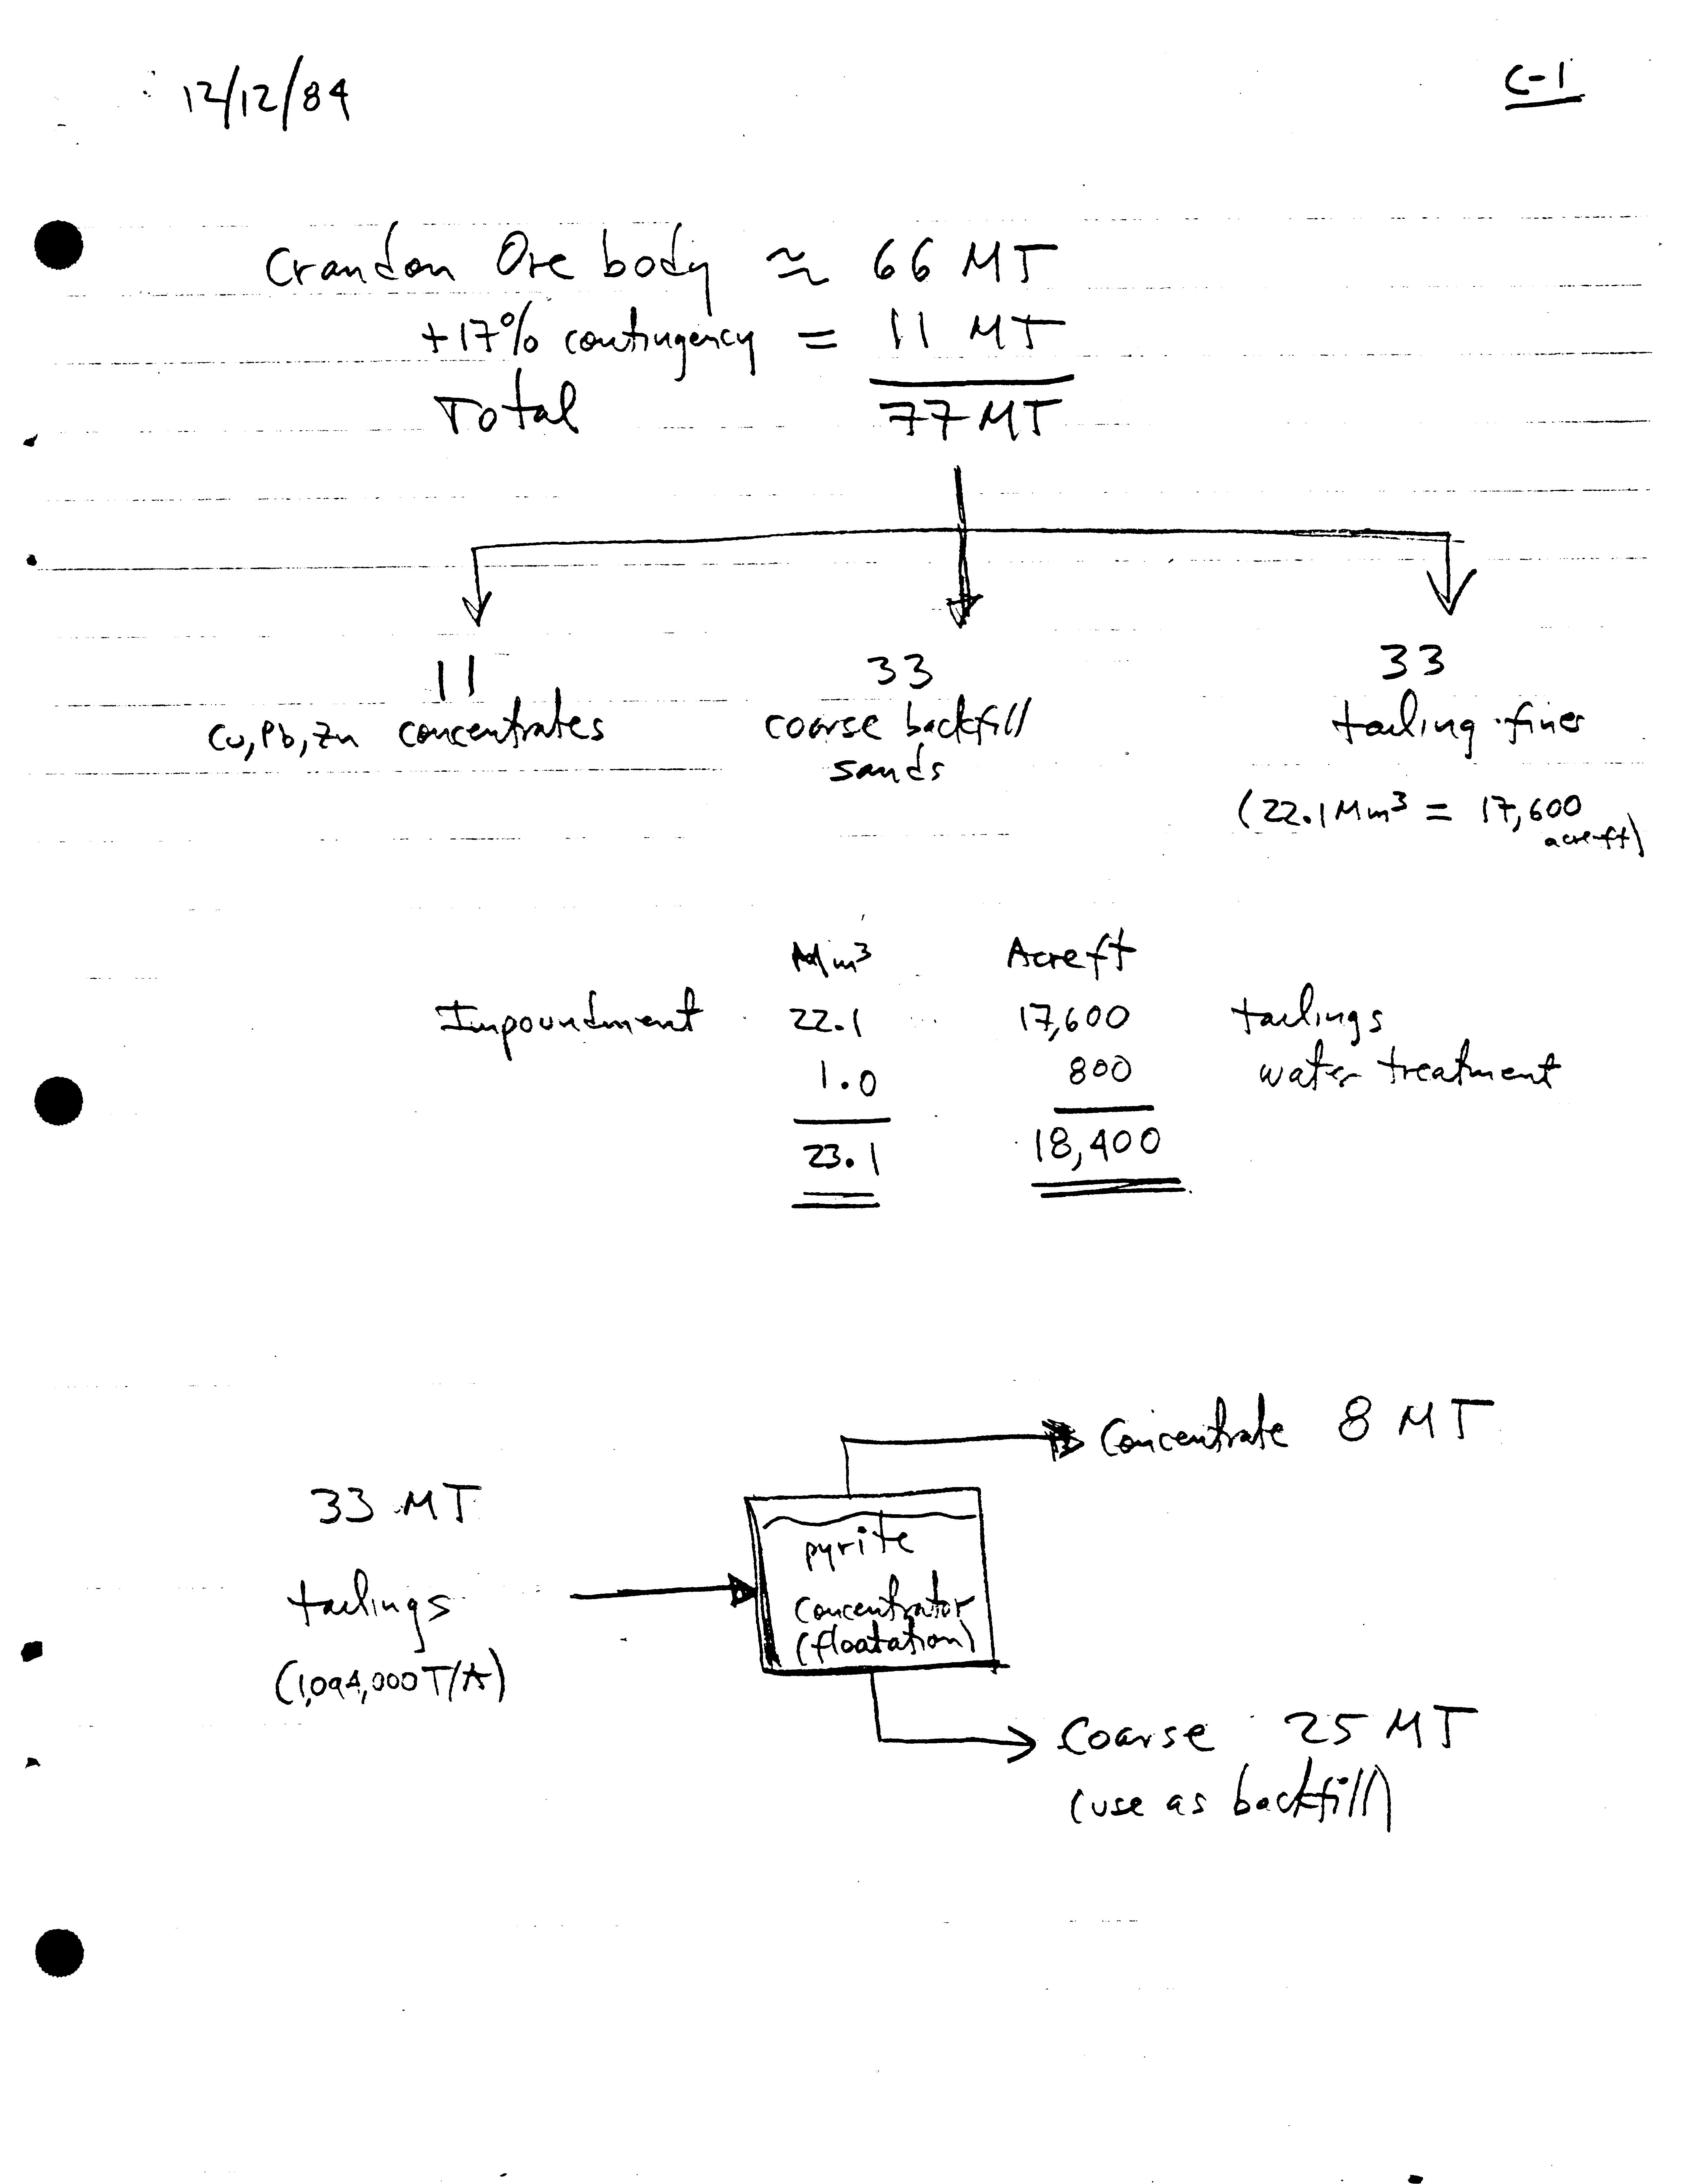 12/12/84
C-1
Crandon Ore body ≈ 66 MT
+17% contingency = 11 MT
Total 77 MT
11 33 33
Cu, Pb, Zn concentrates coarse backfill tailing fines
sands
(22.1 Mm³ = 17,600
acre ft)
Mm³ Acre ft
Impoundment 22.1 17,600 tailings
1.0 800 water treatment
23.1 18,400
Concentrate 8 MT
33 MT
pyrite
tailings
concentrator
(floatation)
(1,094,000 T/A)
Coarse 25 MT
(use as backfill)